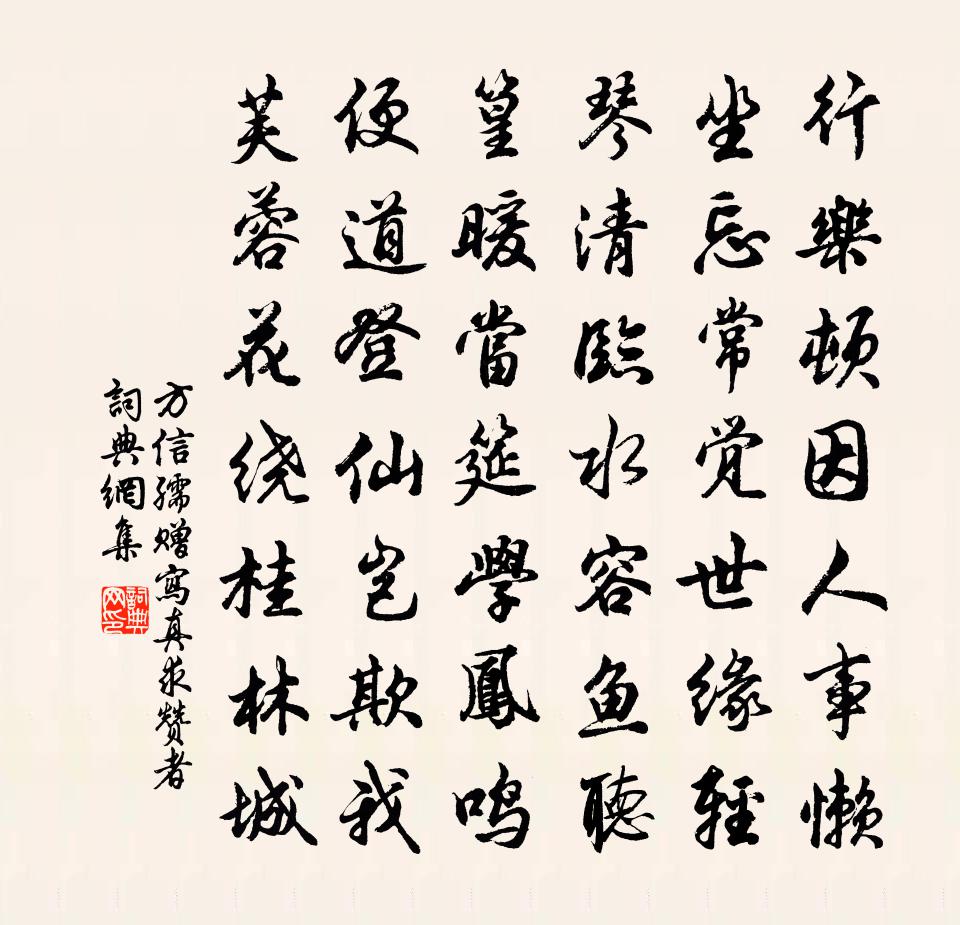 行樂頓因人事懶
坐忘常觉世缘輕
琴清臨水容鱼聽
篁暖當筵學鳳鸣
便道登仙岂欺我
芙蓉花绕桂林城
方信孺赠寫真求赞者
詞典網集
詞典网印